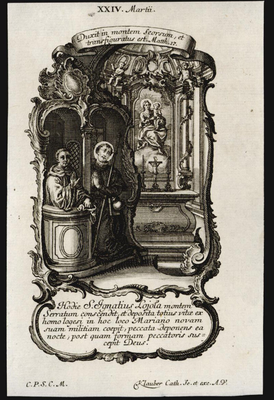 XXIV. Martii.
Duxit in montem seorsum, et
transfiguratus est. Matth. 17.
Hodie S. Ignatius Lojola montem
Serratum conscendit, et deposita totius vitæ ex
homologesi, in hoc loco Mariano novam
suam militiam coepit, peccata deponens ea
nocte, post quam formam peccatoris sus-
cepit Deus.
C. P. S. C. M.
Klauber Cath. Sc. et exc. A. V.